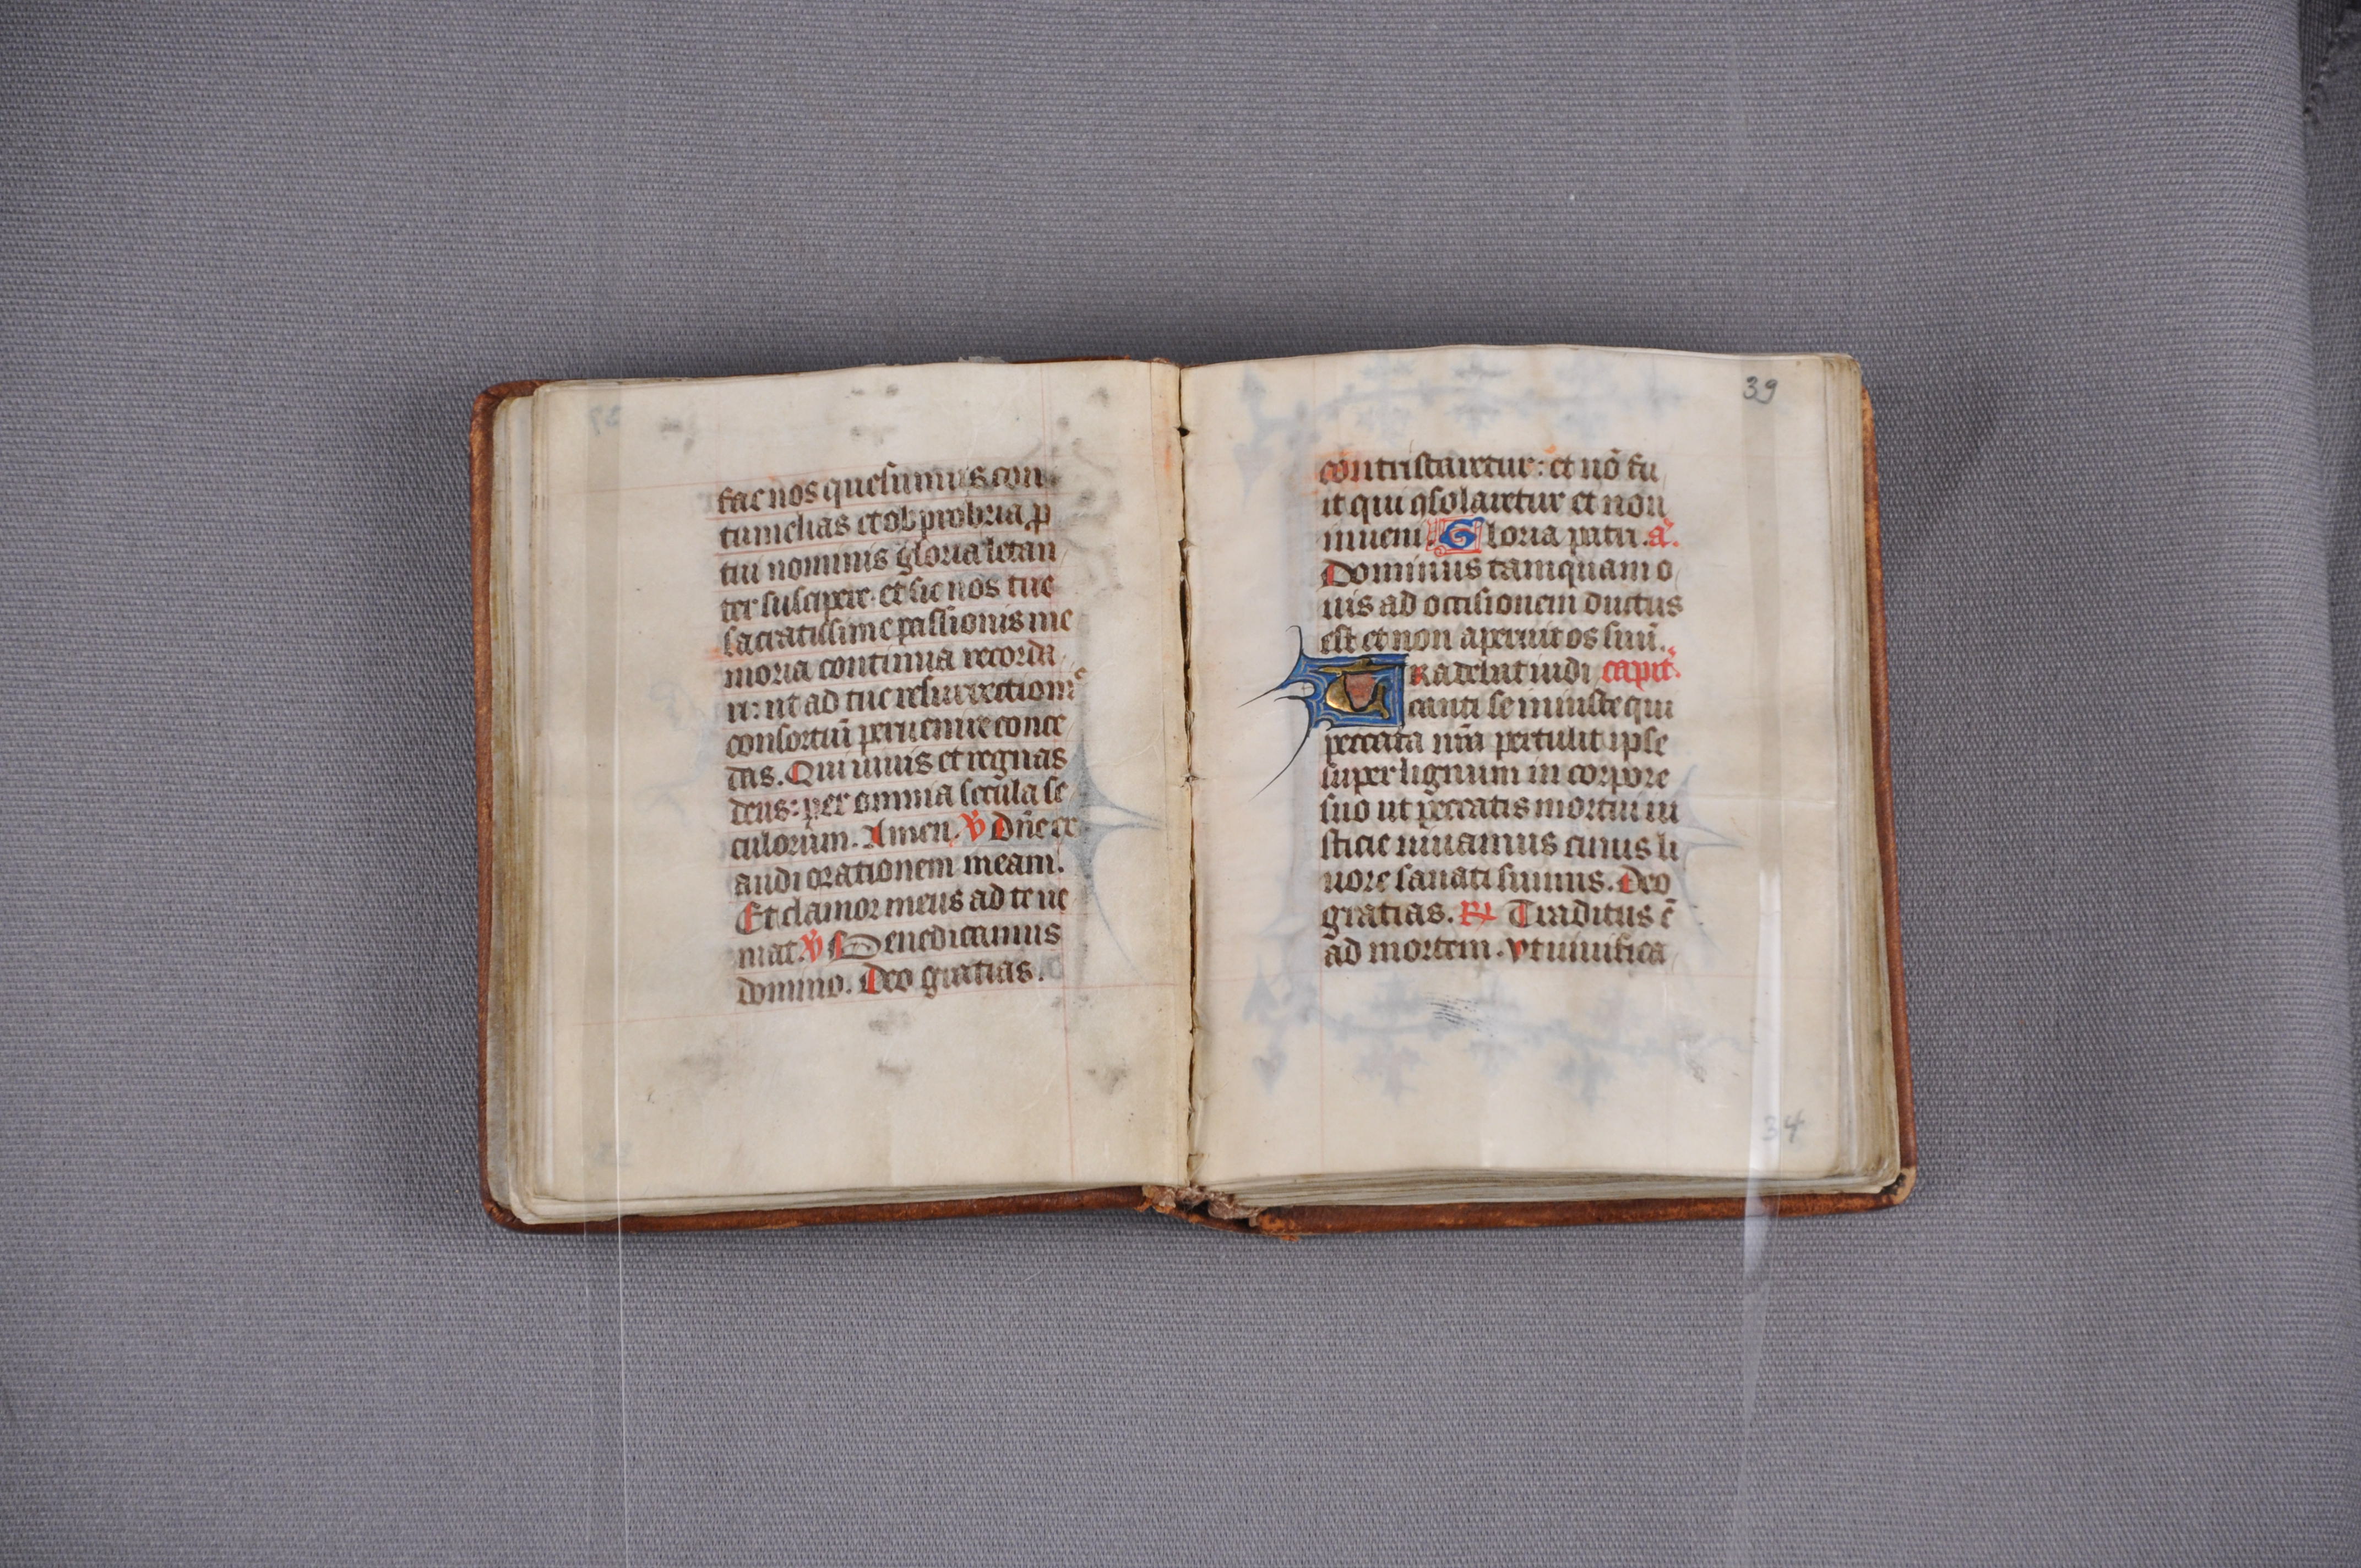 fac nos quesumus con
tumelias et obprobria p̱
tui nominis gloria letan
ter suscipere. et sic nos tue
sacratissime passionis me
moria continua recorda
ri: ut ad tue resurrectionis
consortiū peruenire conce
das. Qui uiuis et regnas
deus: per omnia secula se
culorum. Amen. V̄ Dn̄e ex
audi orationem meam.
Et clamor meus ad te ue
niat. V̄ Benedicamus
domino. Deo gratias.
39
contristaretur: et nō fu
it qui ꝯsolaretur et non
inueni. Gloria patri. a.
Dominus tamquam o
uis ad occisionem ductus
est et non aperuit os suū.
Tradebat iudi capit̄.
canti se iniuste qui
peccata nr̄a pertulit ipse
super lignum in corpore
suo ut peccatis mortui iu
sticie uiuamus cuius li
uore sanati sumus. Deo
gratias. ℟ Traditus ē
ad mortem. Vt uiuifica
34